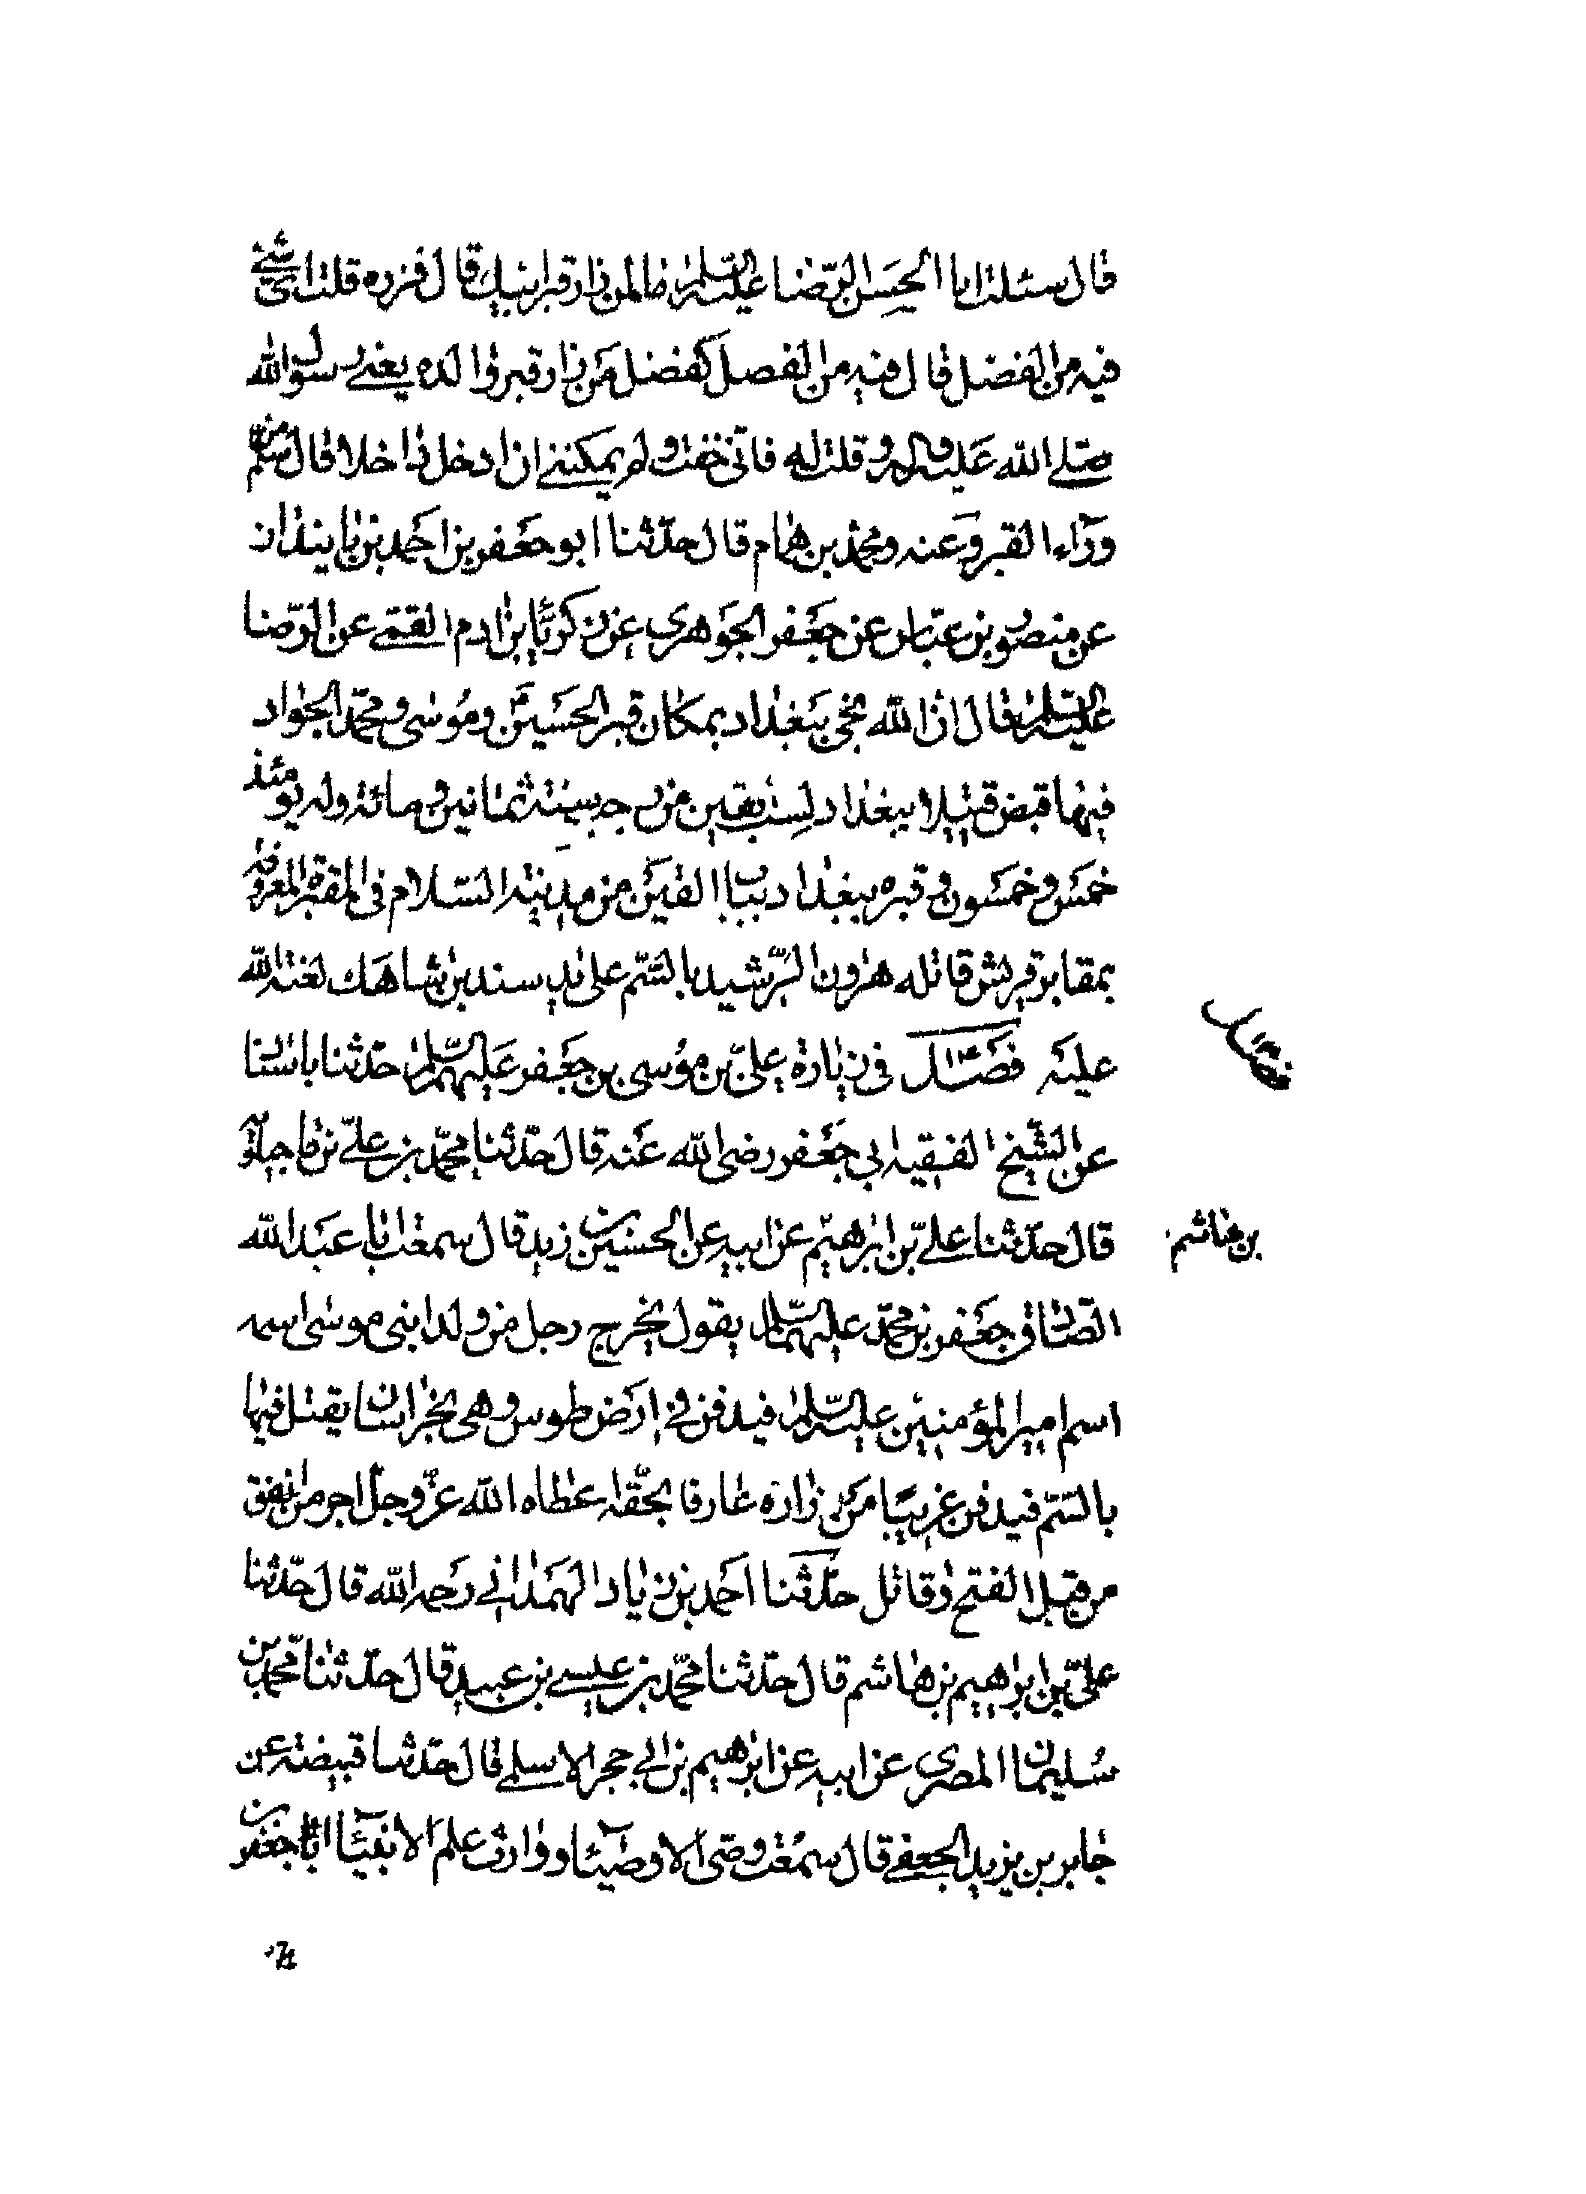 قال سئلت ابا الحسن الرضا عليه السلم ما لمن زار قبر ابيك قال فزره قلت ای شیء
فيه من الفضل قال فيه من الفضل كفضل من زار قبر والده يعنی رسول الله
صلی الله عليه واله وقلت له فانی خفت ولم يمكننی ان ادخل داخلا قال سلم من
وراء القبر وعنه ومحمد بن همام قال حدثنا ابو جعفر بن احمد بن بابنداد
عن منصور بن عباس عن جعفر الجوهری عن زكريا بن ادم القمی عن الرضا
عليه السلم قال ان الله نجی بغداد بمكان قبر الحسينين وموسی ومحمد الجواد
فيها قبض قتيلا ببغداد لست بقين من رجب سنة ثمانين ومائة وله يومئذ
خمس وخمسون وقبره ببغداد بباب التين من مدينة السلام فی المقبرة المعروفة
بمقابر قريش قاتله هرون الرشيد بالسم علی يد سند بن شاهك لعنة الله
عليه فصل فی زيارة علی بن موسی بن جعفر عليهم السلم حدثنا باسنا
فصل
عن الشيخ الفقيه ابی جعفر رضی الله عنه قال حدثنا محمد بن علی بن ماجيلويه
قال حدثنا علی بن ابرهيم عن ابيه عن الحسين بن زيد قال سمعت ابا عبد الله
بن هاشم
الصادق جعفر بن محمد عليهما السلم يقول يخرج رجل من ولد ابنی موسی اسمه
اسم امير المؤمنين عليه السلم فيدفن فی ارض طوس وهی بخراسان يقتل فيها
بالسم فيدفن غريبا من زاره عارفا بحقه اعطاه الله عز وجل اجر من انفق
من قبل الفتح وقاتل حدثنا احمد بن زياد الهمدانی رحمه الله قال حدثنا
علی بن ابراهيم بن هاشم قال حدثنا محمد بن عيسی بن عبيد قال حدثنا محمد بن
سليمان المصری عن ابيه عن ابرهيم بن ابی حجر الاسلمی قال حدثنا قبيضة عن
جابر بن يزيد الجعفی قال سمعت وصی الاوصياء ووارث علم الانبياء ابا جعفر بن